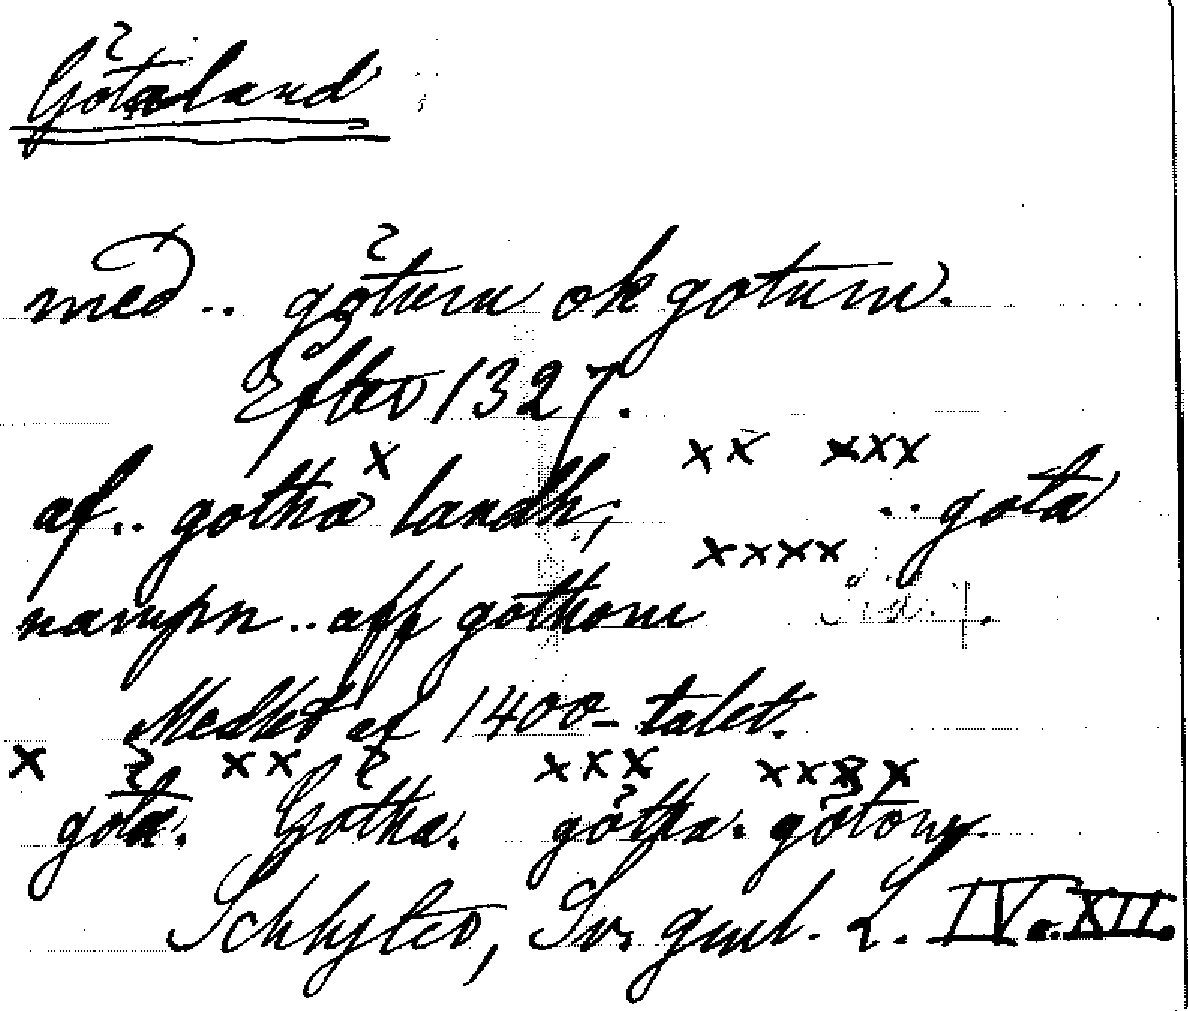 Götaland
med .. götum ok gotum.
Efter 1327.
x xx xxx
af .. gotha landh; .. gota
xxxx
nampn .. aff gothom
Medlet af 1400-talet.
x xx xxx xxxx
gota. Götha. götha. götom
Schlyter, Sv. gml. L. IV o. XII.